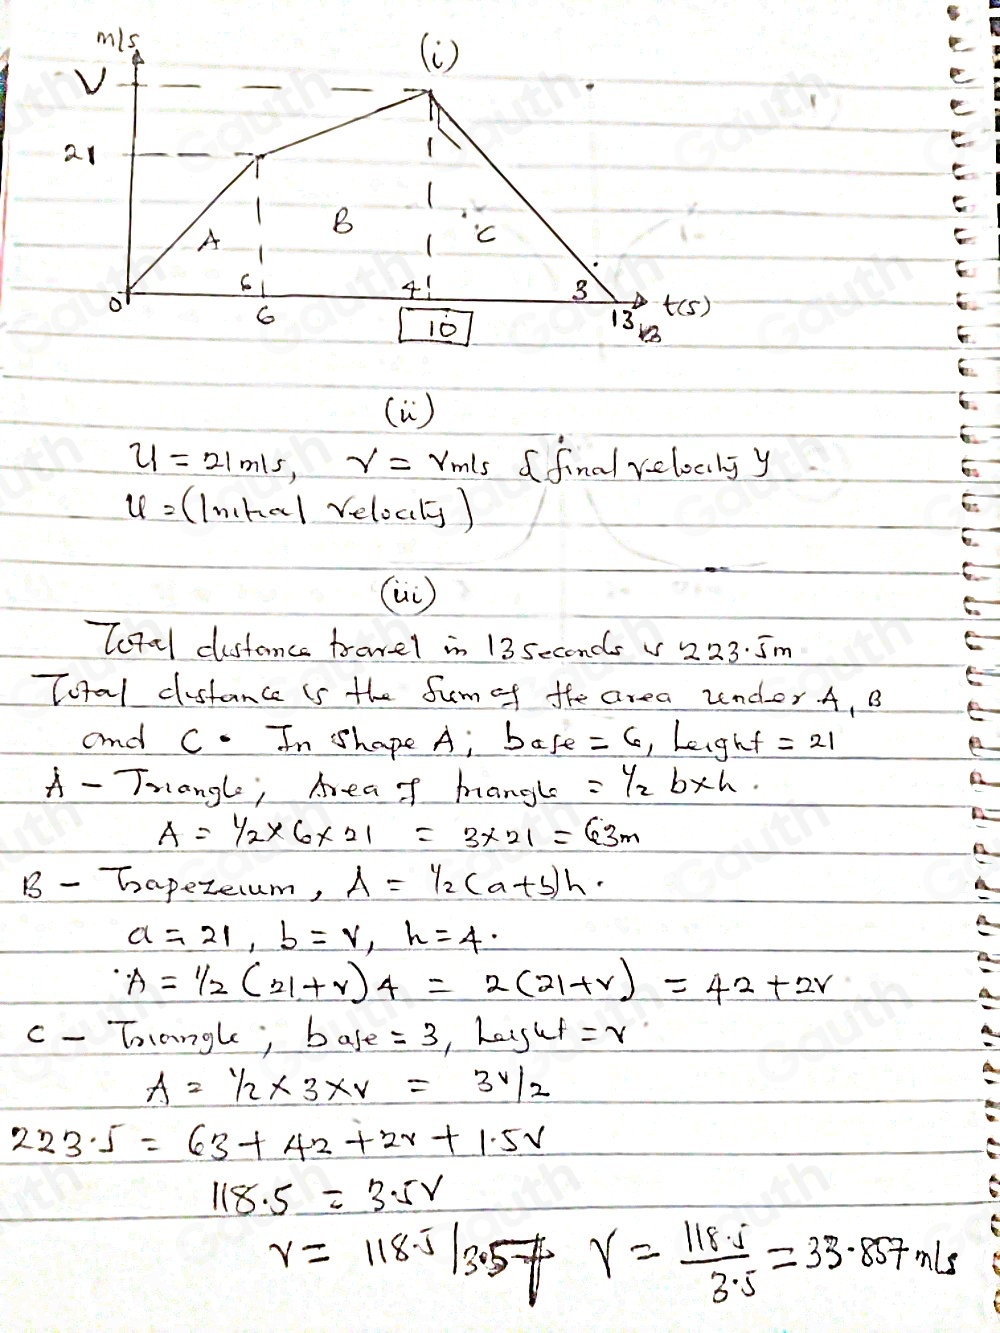 m/s
(i)
V
21
A
B
C
6
4
3
0
6
10
13
t(s)
(ii)
U = 21m/s, V = Vm/s {final velocity}
U = (Initial velocity)
(iii)
Total distance travel in 13 seconds is 223.5m
Total distance is the sum of the area under A, B
and C. In shape A; base = 6, height = 21
A - Triangle; Area of triangle = 1/2 b×h.
A = 1/2 × 6 × 21 = 3×21 = 63m
B - Trapezeium, A = 1/2(a+b)h.
a = 21, b = V, h = 4.
A = 1/2 (21+V)4 = 2(21+V) = 42+2V
C - Triangle; base = 3, height = V
A = 1/2 × 3 × V = 3V/2
223.5 = 63 + 42 + 2V + 1.5V
118.5 = 3.5V
V = 118.5/3.5 V = 118.5/3.5 = 33.857m/s